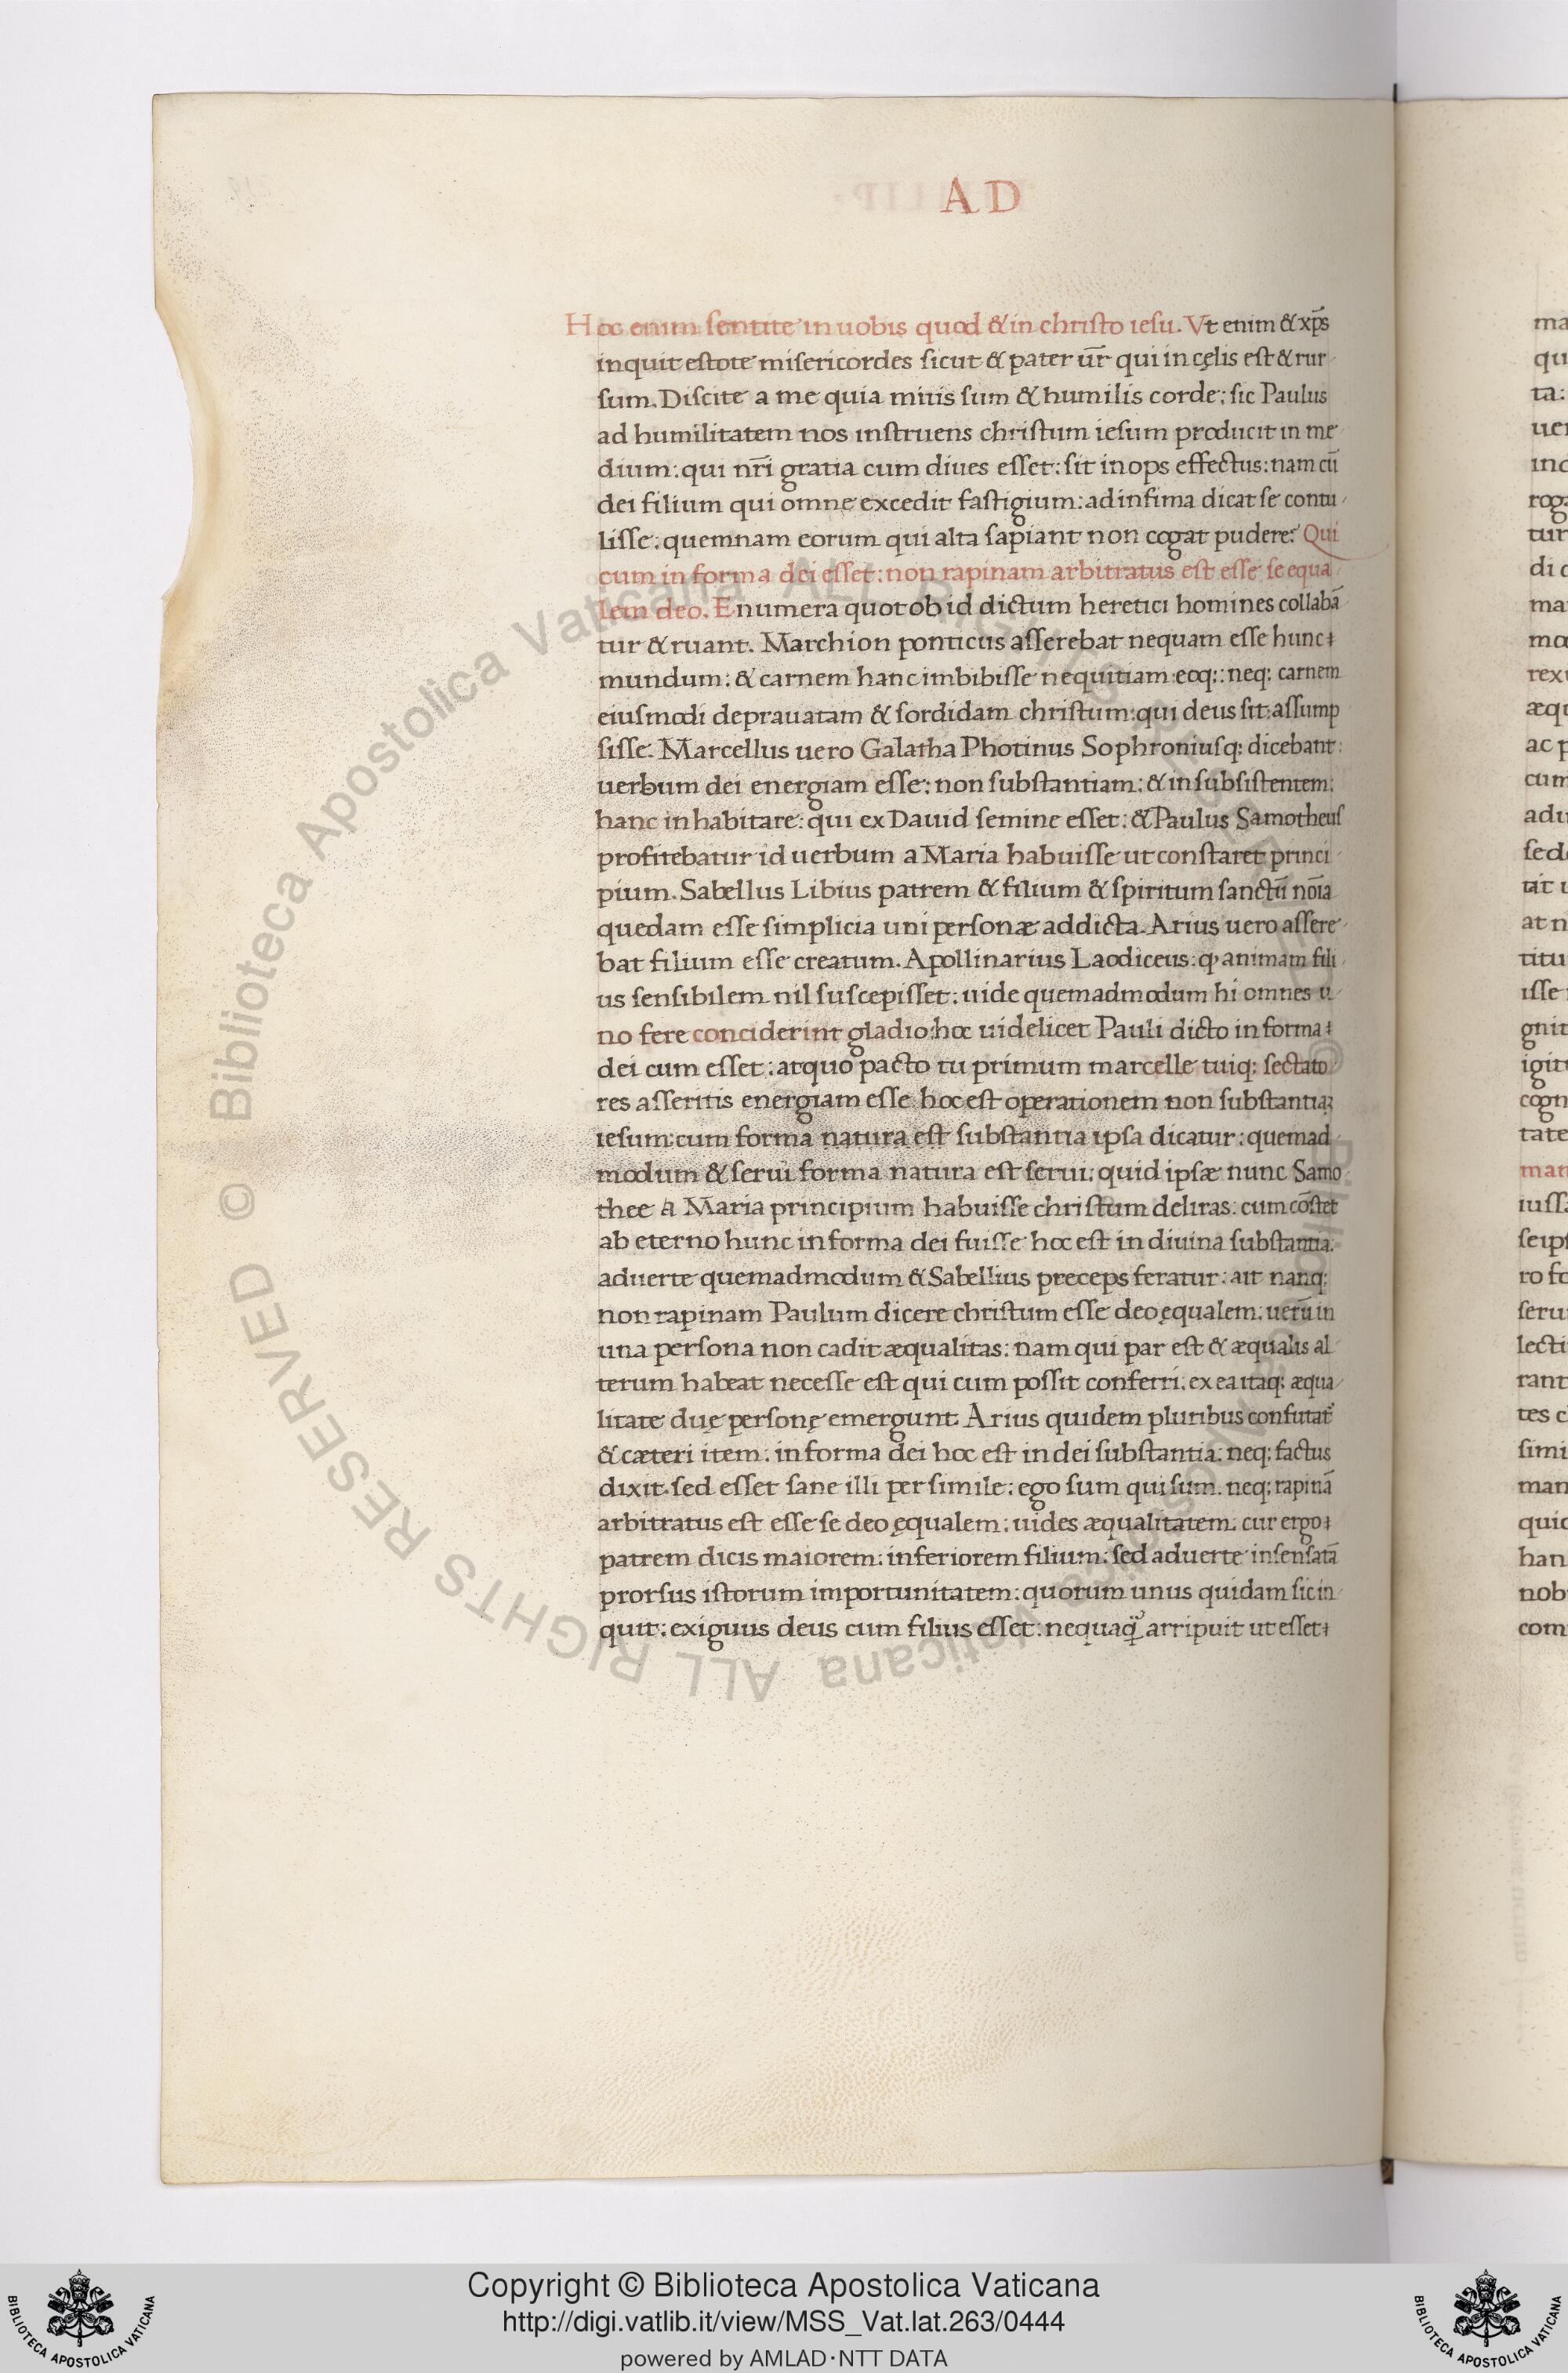 AD
Hoc enim sentite in uobis quod & in christo iesu. Vt enim & xp̄s
inquit estote misericordes sicut & pater ūr qui in cęlis est & rur
sum. Discite a me quia mitis sum & humilis corde: sic Paulus
ad humilitatem nos instruens christum iesum producit in me
dium: qui nr̄i gratia cum diues esset: sit inops effectus: nam cū
dei filium qui omne excedit fastigium: ad infima dicat se contu
lisse: quemnam eorum qui alta sapiant non cogat pudere: Qui
cum in forma dei esset: non rapinam arbitratus est esse se equa
lem deo. Enumera quot ob id dictum heretici homines collabā
tur & ruant. Marchion ponticus asserebat nequam esse hunc
mundum: & carnem hanc imbibisse nequitiam: eoq;: neq; carnem
eiusmodi deprauatam & sordidam christum: qui deus sit: assump
sisse. Marcellus uero Galatha Photinus Sophroniusq; dicebant:
uerbum dei energiam esse: non substantiam: & in subsistentem:
hanc inhabitare: qui ex Dauid semine esset: & Paulus Samotheus
profitebatur id uerbum a Maria habuisse ut constaret princi
pium. Sabellus Libius patrem & filium & spiritum sanctū noīa
quedam esse simplicia uni personæ addicta. Arius uero assere
bat filium esse creatum. Apollinarius Laodiceus: ꝙ animam fili
us sensibilem nil suscepisset: uide quemadmodum hi omnes u
no fere conciderint gladio: hoc uidelicet Pauli dicto in forma
dei cum esset: at quo pacto tu primum marcelle tuiq; sectato
res asseritis energiam esse hoc est operationem non substantiaȝ
iesum: cum forma natura est substantia ipsa dicatur: quemad
modum & serui forma natura est serui: quid ipsæ nunc Samo
thee a Maria principium habuisse christum deliras: cum cōstet
ab eterno hunc in forma dei fuisse hoc est in diuina substantia:
aduerte quemadmodum & Sabellius preceps feratur: ait nanq;
non rapinam Paulum dicere christum esse deo ęqualem: uerū in
una persona non cadit æqualitas: nam qui par est & æqualis al
terum habeat necesse est qui cum possit conferri. ex ea itaq; æqua
litate duę personę emergunt. Arius quidem pluribus confutat᷑
& cæteri item: in forma dei hoc est in dei substantia: neq; factus
dixit. sed esset sane illi per simile: ego sum qui sum. neq; rapinā
arbitratus est esse se deo ęqualem: uides æqualitatem. cur ergo
patrem dicis maiorem: inferiorem filium: sed aduerte insensatā
prorsus istorum importunitatem: quorum unus quidam sic in
quit: exiguus deus cum filius esset: nequaq̃ arripuit ut esset
ma
qu
ta:
uer
ind
roga
tur
di c
mar
mo
rexi
æqu
ac p
cum
adu
sede
tit u
at n
titu
isse
gnit
igit
cogn
tate
man
iussa
seips
ro fo
seru
lecti
rant
tes c
simi
man
quid
han
nob
com
© Biblioteca Apostolica Vaticana ALL RIGHTS RESERVED
© Biblioteca Apostolica Vaticana ALL RIGHTS RESERVED
Copyright © Biblioteca Apostolica Vaticana
http://digi.vatlib.it/view/MSS_Vat.lat.263/0444
powered by AMLAD·NTT DATA
BIBLIOTECA APOSTOLICA VATICANA
BIBLIOTECA APOSTOLICA VATICANA